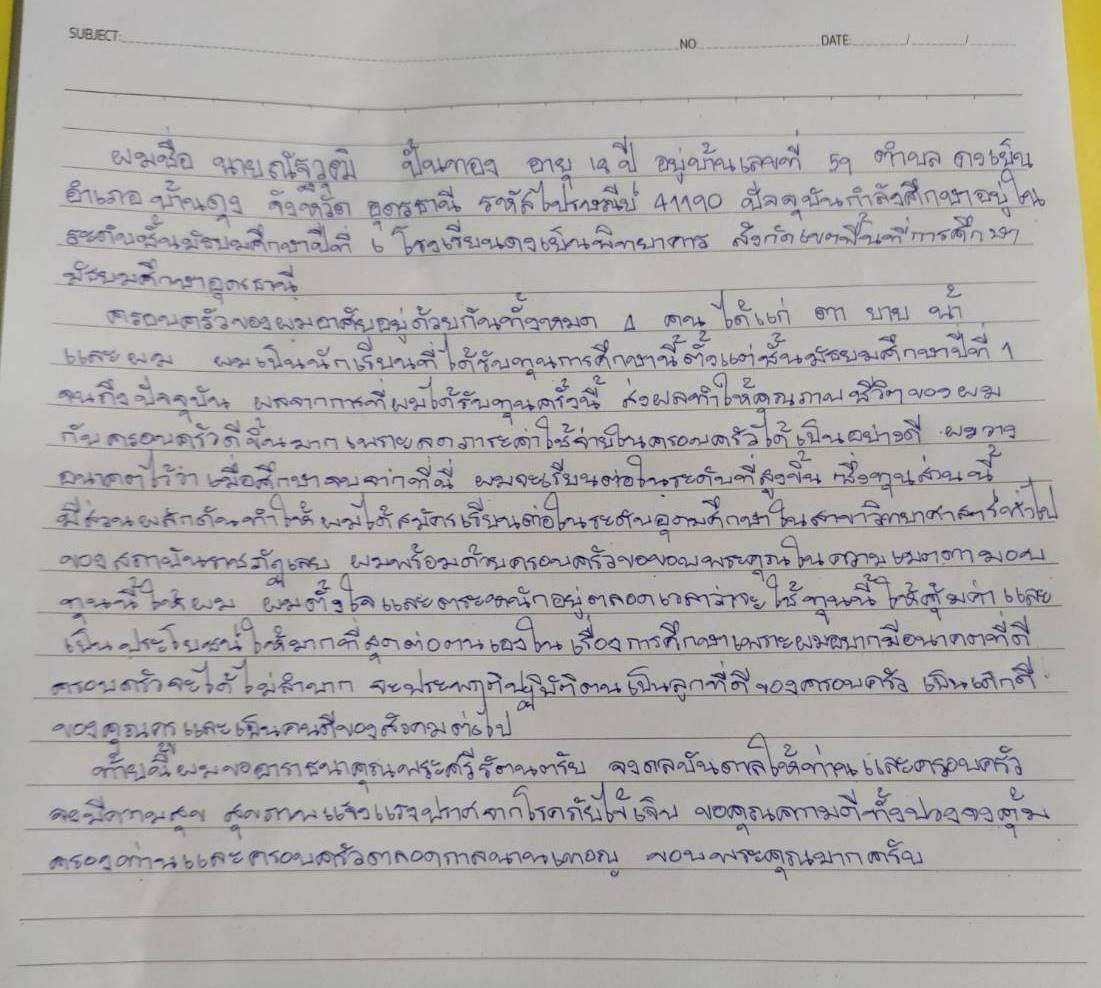 SUBJECT: NO DATE / /
ผมชื่อ นายณัฐวุฒิ ปั่นทอง อายุ ปี อยู่บ้านเลขที่ 59 ตำบล ดงเย็น
อำเภอ บ้านดุง จังหวัด อุดรธานี รหัสไปรษณีย์ 41190 ปัจจุบันกำลังศึกษาอยู่ใน
ระดับชั้นมัธยมศึกษาปีที่ 6 โรงเรียนดงเย็นพิทยาคาร สังกัดเขตพื้นที่การศึกษา
มัธยมศึกษาอุดรธานี
ครอบครัวของผมอาศัยอยู่ด้วยกันทั้งหมด 4 คน ได้แก่ ตา ยาย น้า
และผม ผมเป็นนักเรียนที่ได้รับทุนการศึกษานี้ตั้งแต่ชั้นมัธยมศึกษาปีที่ 1
จนถึงปัจจุบัน ผลจากการที่ผมได้รับทุนครั้งนี้ ส่งผลทำให้คุณภาพชีวิตของผม
กับครอบครัวดีขึ้นมากเพราะลดภาระค่าใช้จ่ายในครอบครัวได้เป็นอย่างดี ผมวาง
อนาคตไว้ว่าเมื่อศึกษาจบจากที่นี่ ผมจะเรียนต่อในระดับที่สูงขึ้น ซึ่งทุนส่วนนี้
มีส่วนผลักดันทำให้ผมได้สมัครเรียนต่อในระดับอุดมศึกษาในสาขาวิทยาศาสตร์ทั่วไป
ของสถาบันราชภัฏเลย ผมพร้อมด้วยครอบครัวขอขอบพระคุณในความเมตตามอบ
ทุนนี้ให้ผม ผมตั้งใจและตระหนักอยู่ตลอดเวลาว่าจะใช้ทุนนี้ให้คุ้มค่าและ
เป็นประโยชน์ให้มากที่สุดต่อตนเองในเรื่องการศึกษาเพราะผมอยากมีอนาคตที่ดี
ครอบครัวจะได้ไม่ลำบาก จะประพฤติปฏิบัติตนเป็นลูกที่ดีของครอบครัว เป็นเด็กดี
ของคุณครูและเป็นคนดีของสังคมต่อไป
ท้ายนี้ผมขออาราธนาคุณพระศรีรัตนตรัย จงดลบันดาลให้ท่านและครอบครัว
จงมีความสุข สุขภาพแข็งแรงปราศจากโรคภัยไข้เจ็บ ขอคุณความดีทั้งปวงจงคุ้ม
ครองท่านและครอบครัวตลอดกาลนานเทอญ ขอบพระคุณมากครับ